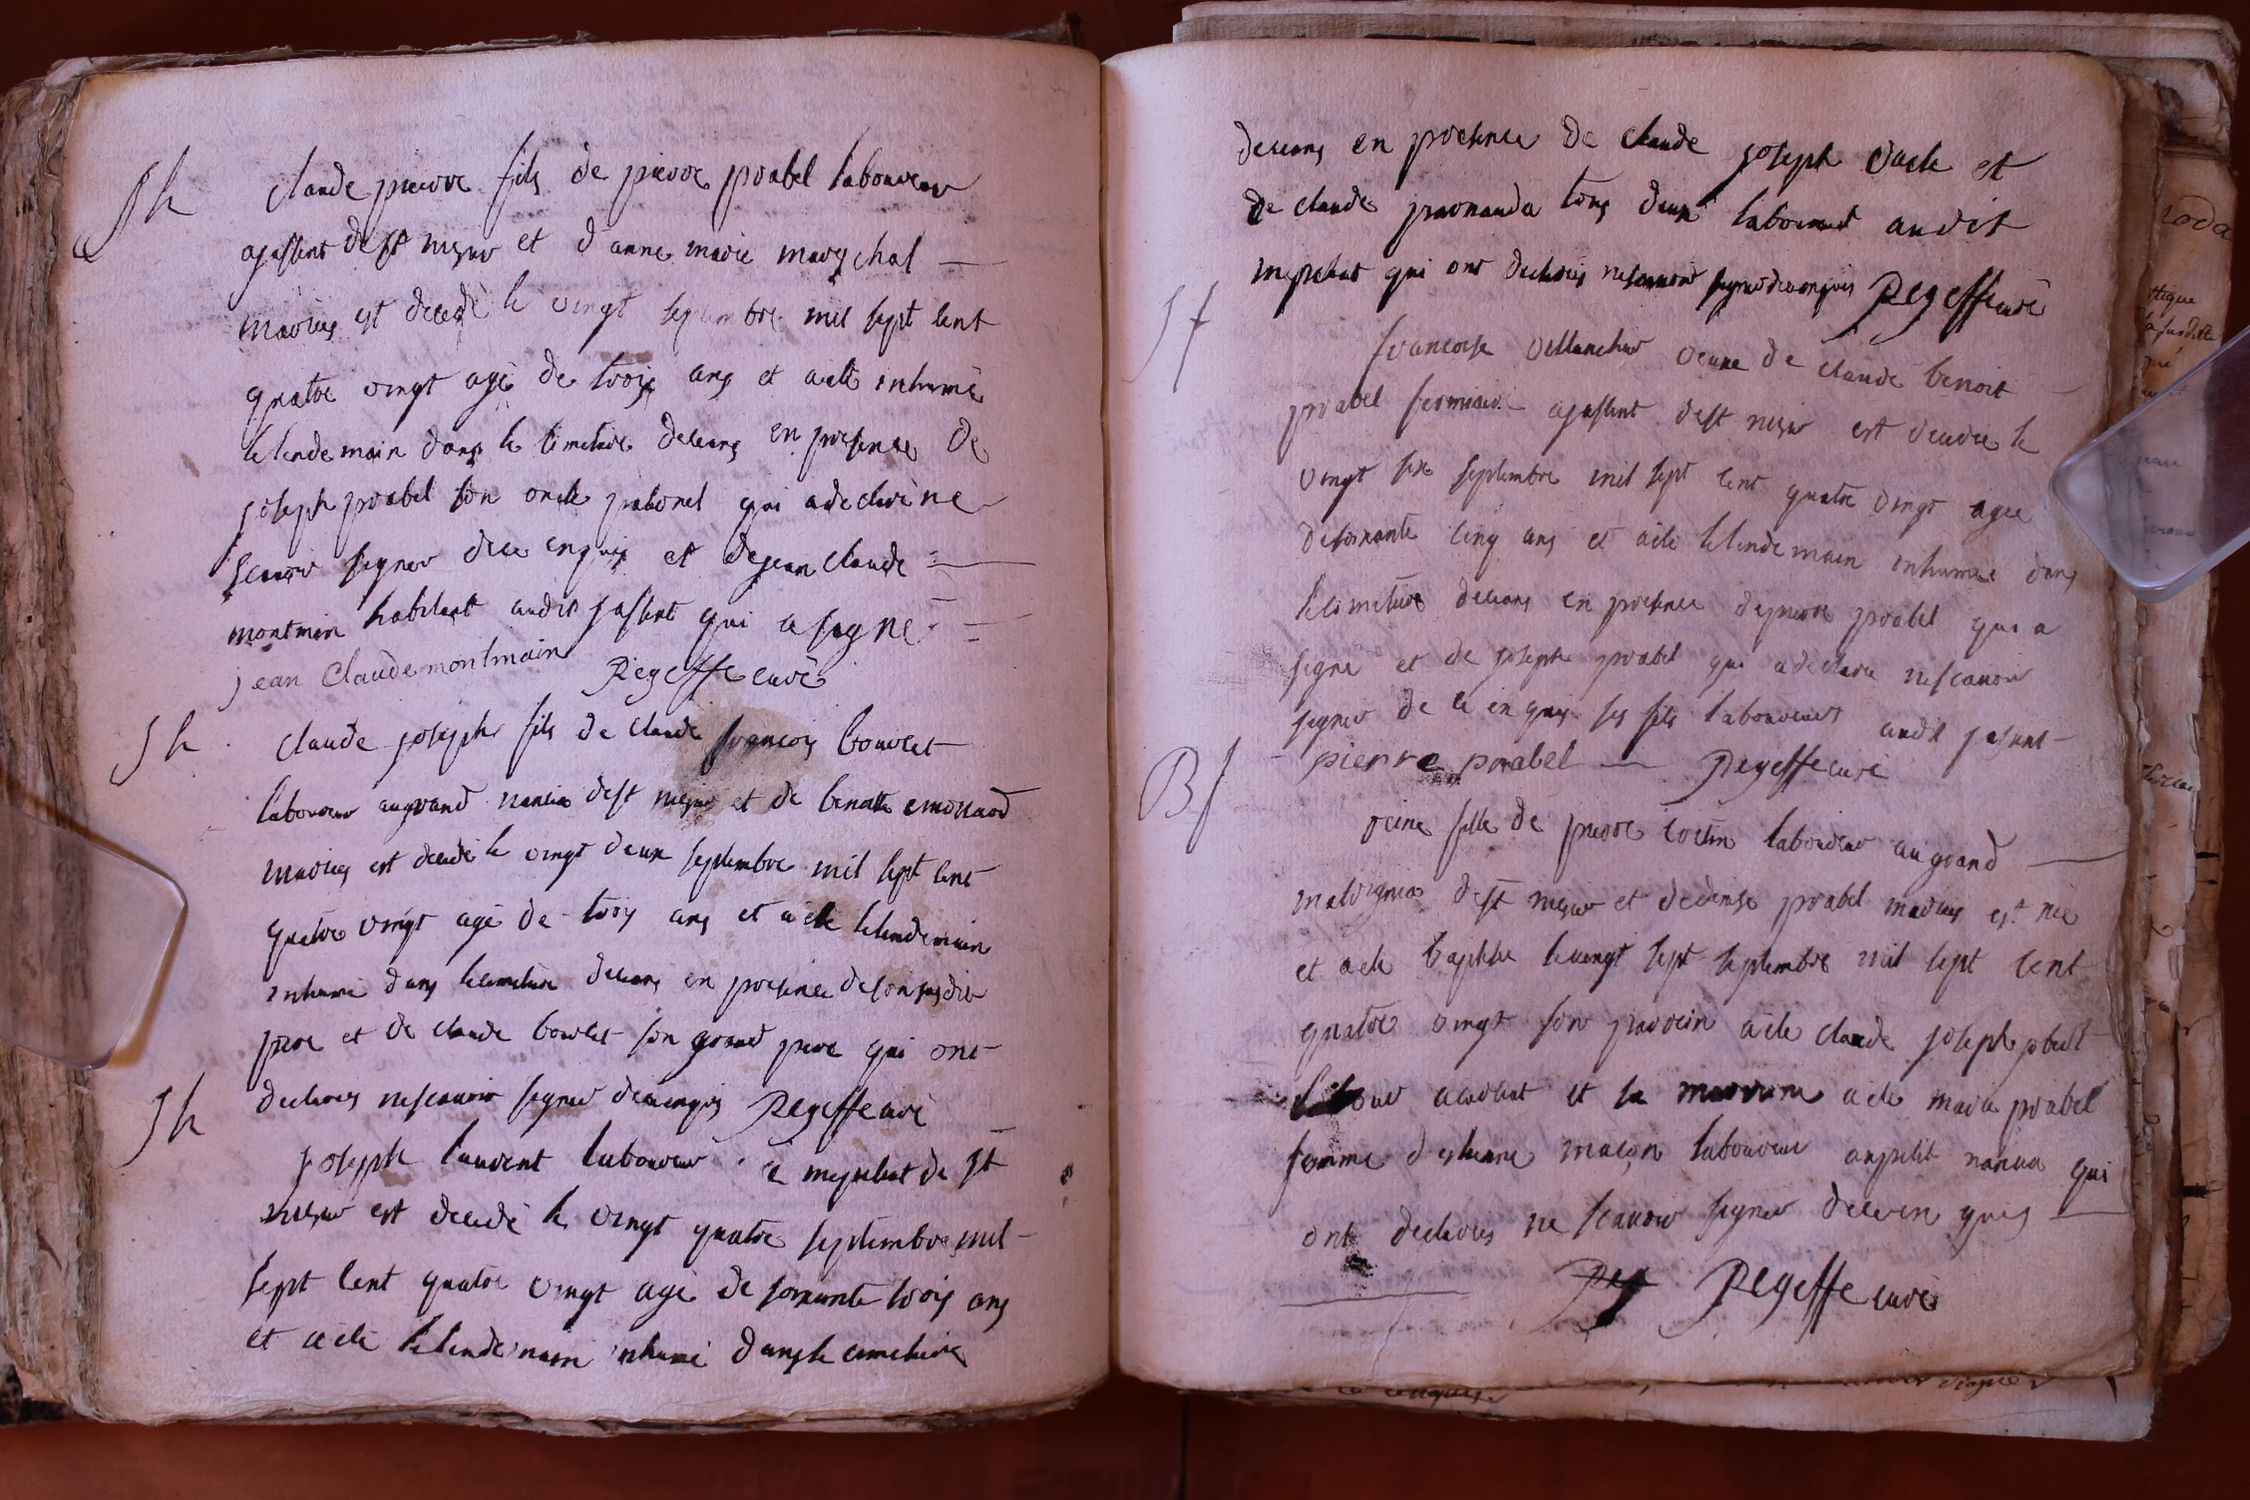 Sh claude pierre fils de pierre prabel laboureur
a jassent de st nizier et d anne marie marechal
mariés est decedé le vingt septembre mil sept cent
quatre vingt agé de trois ans et a ete inhumé
le lendemain dans le cimetiere deceans en presence de
joseph prabel son oncle paternel qui a declaré ne
scavoir signer de ce enquis et de jean claude
montmin habitant audit jassent qui a signé
jean claude montmain Regeffe curé
Sh claude joseph fils de claude françois bouvlet
laboureur au grand nancia de st nizier et de benoite emonard
mariés est decedé le vingt deux septembre mil sept cent
quatre vingt agé de trois ans et a ete le lendemain
inhumé dans le cimetiere deceans en presence de son susdit
pere et de claude bouvlet son grand pere qui ont
declarés ne scavoir signer de ce enquis Regeffe curé
Sh joseph laurent laboureur a mepilat de st
nizier est decedé le vingt quatre septembre mil
sept cent quatre vingt agé de soixante trois ans
et a ete le lendemain inhumé dans le cimetiere
deceans en presence de claude joseph et
de claude tous deux laboureurs audit
mepilat qui ont declarés ne scavoir signer de ce enquis Regeffe curé
Sf francoise veuve de claude benoit
prabel fermier a jassent de st nizier est decedée le
vingt six septembre mil sept cent quatre vingt agée
de soixante cinq ans et a ete le lendemain inhumée dans
le cimetiere deceans en presence de pierre prabel qui a
signé et de joseph prabel qui a declaré ne scavoir
signer de ce enquis ses fils laboureurs audit jassent
pierre prabel Regeffe curé
Bf reine fille de pierre laboureur au grand
de st nizier et de denise prabel mariés est née
et a ete baptisée le vingt sept septembre mil sept cent
quatre vingt son parrein a ete claude joseph
et sa marraine a ete marie prabel
femme d etienne maçon laboureur au petit nancia qui
ont declarés ne scavoir signer de ce enquis
Reg Regeffe curé